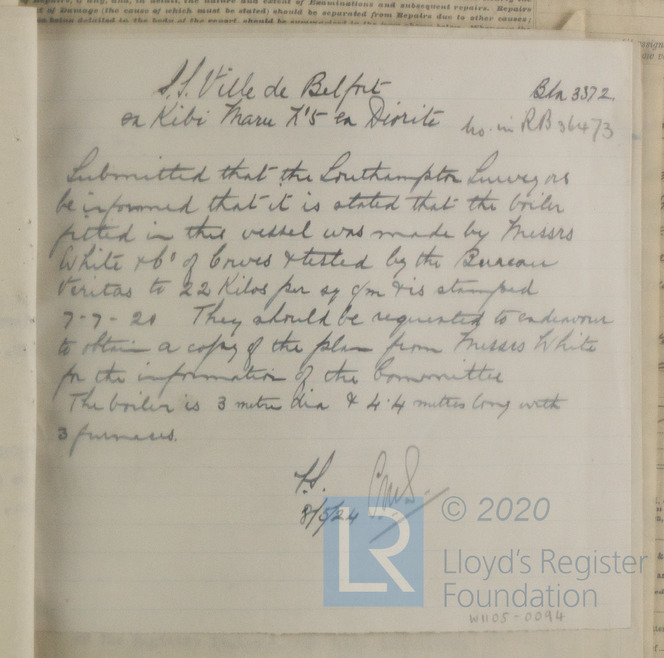 of Damage (the cause of which must be stated) should be separated from Repairs due to other causes;
S.S. Ville de Belfort
Bln 3372.
ex Kibi Maru X'5 ex Diorite
No. in RB 36473
Submitted that the Southampton Surveyors
be informed that it is stated that the boiler
fitted in this vessel was made by Messrs
White & Co of Cowes & tested by the Bureau
Veritas to 22 Kilos per sq c/m & is stamped
7-7-20 They should be requested to endeavour
to obtain a copy of the plan from Messrs White
for the information of the Committee
The boiler is 3 metre dia & 4.4 metres long with
3 furnaces.
8/5/24
LR
© 2020
Lloyd's Register
Foundation
W1105-0094